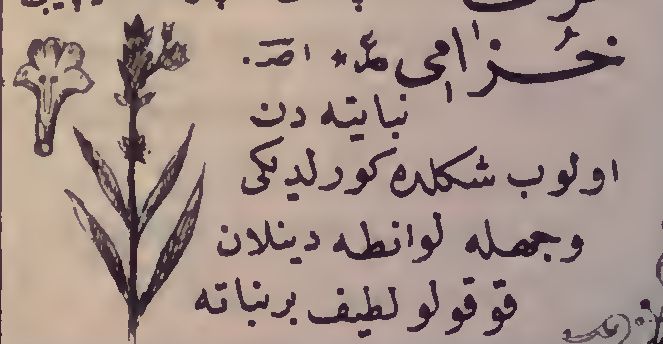 خزامی
نباتیه دن
اولوب شکلده کورلدیکی
وجهله لوانطه دینلان
قوقولو لطیف برنباته